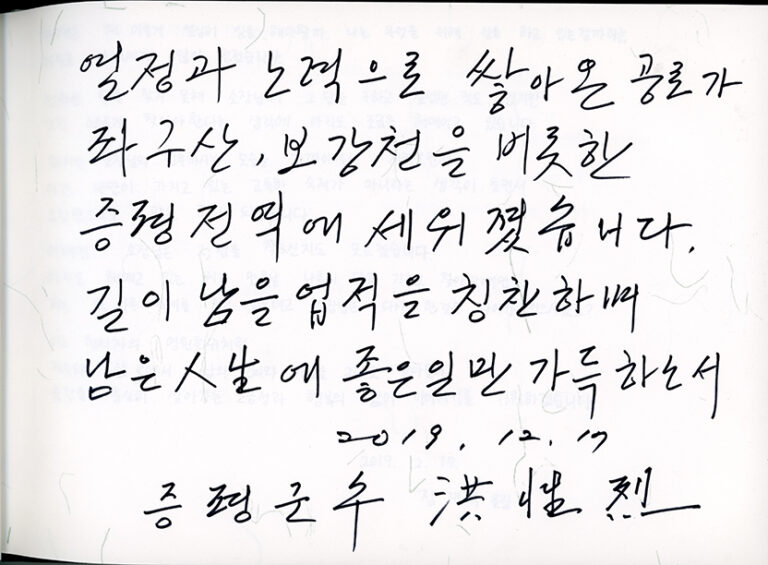 열정과 노력으로 쌓아온 공로가
좌구산, 보강천을 비롯한
증평 전역에 세워졌습니다.
길이 남을 업적을 칭찬하며
남은 人生에 좋은일만 가득하소서
2019. 12. 17
증평군수 洪性烈